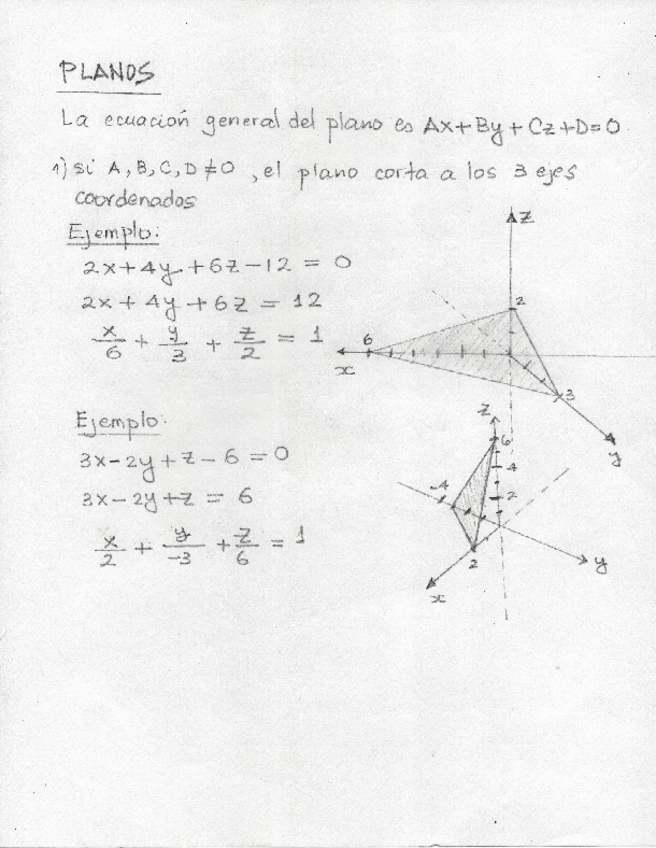 PLANOS
La ecuación general del plano es Ax+By+Cz+D=0
1) si A, B, C, D ≠ 0, el plano corta a los 3 ejes
coordenados
Ejemplo:
2x+4y+6z-12 = 0
2x+4y+6z = 12
x/6 + y/3 + z/2 = 1
z
2
6
x
3
y
Ejemplo:
3x-2y+z-6=0
3x-2y+z = 6
x/2 + y/-3 + z/6 = 1
z
6
4
-4
2
2
y
x